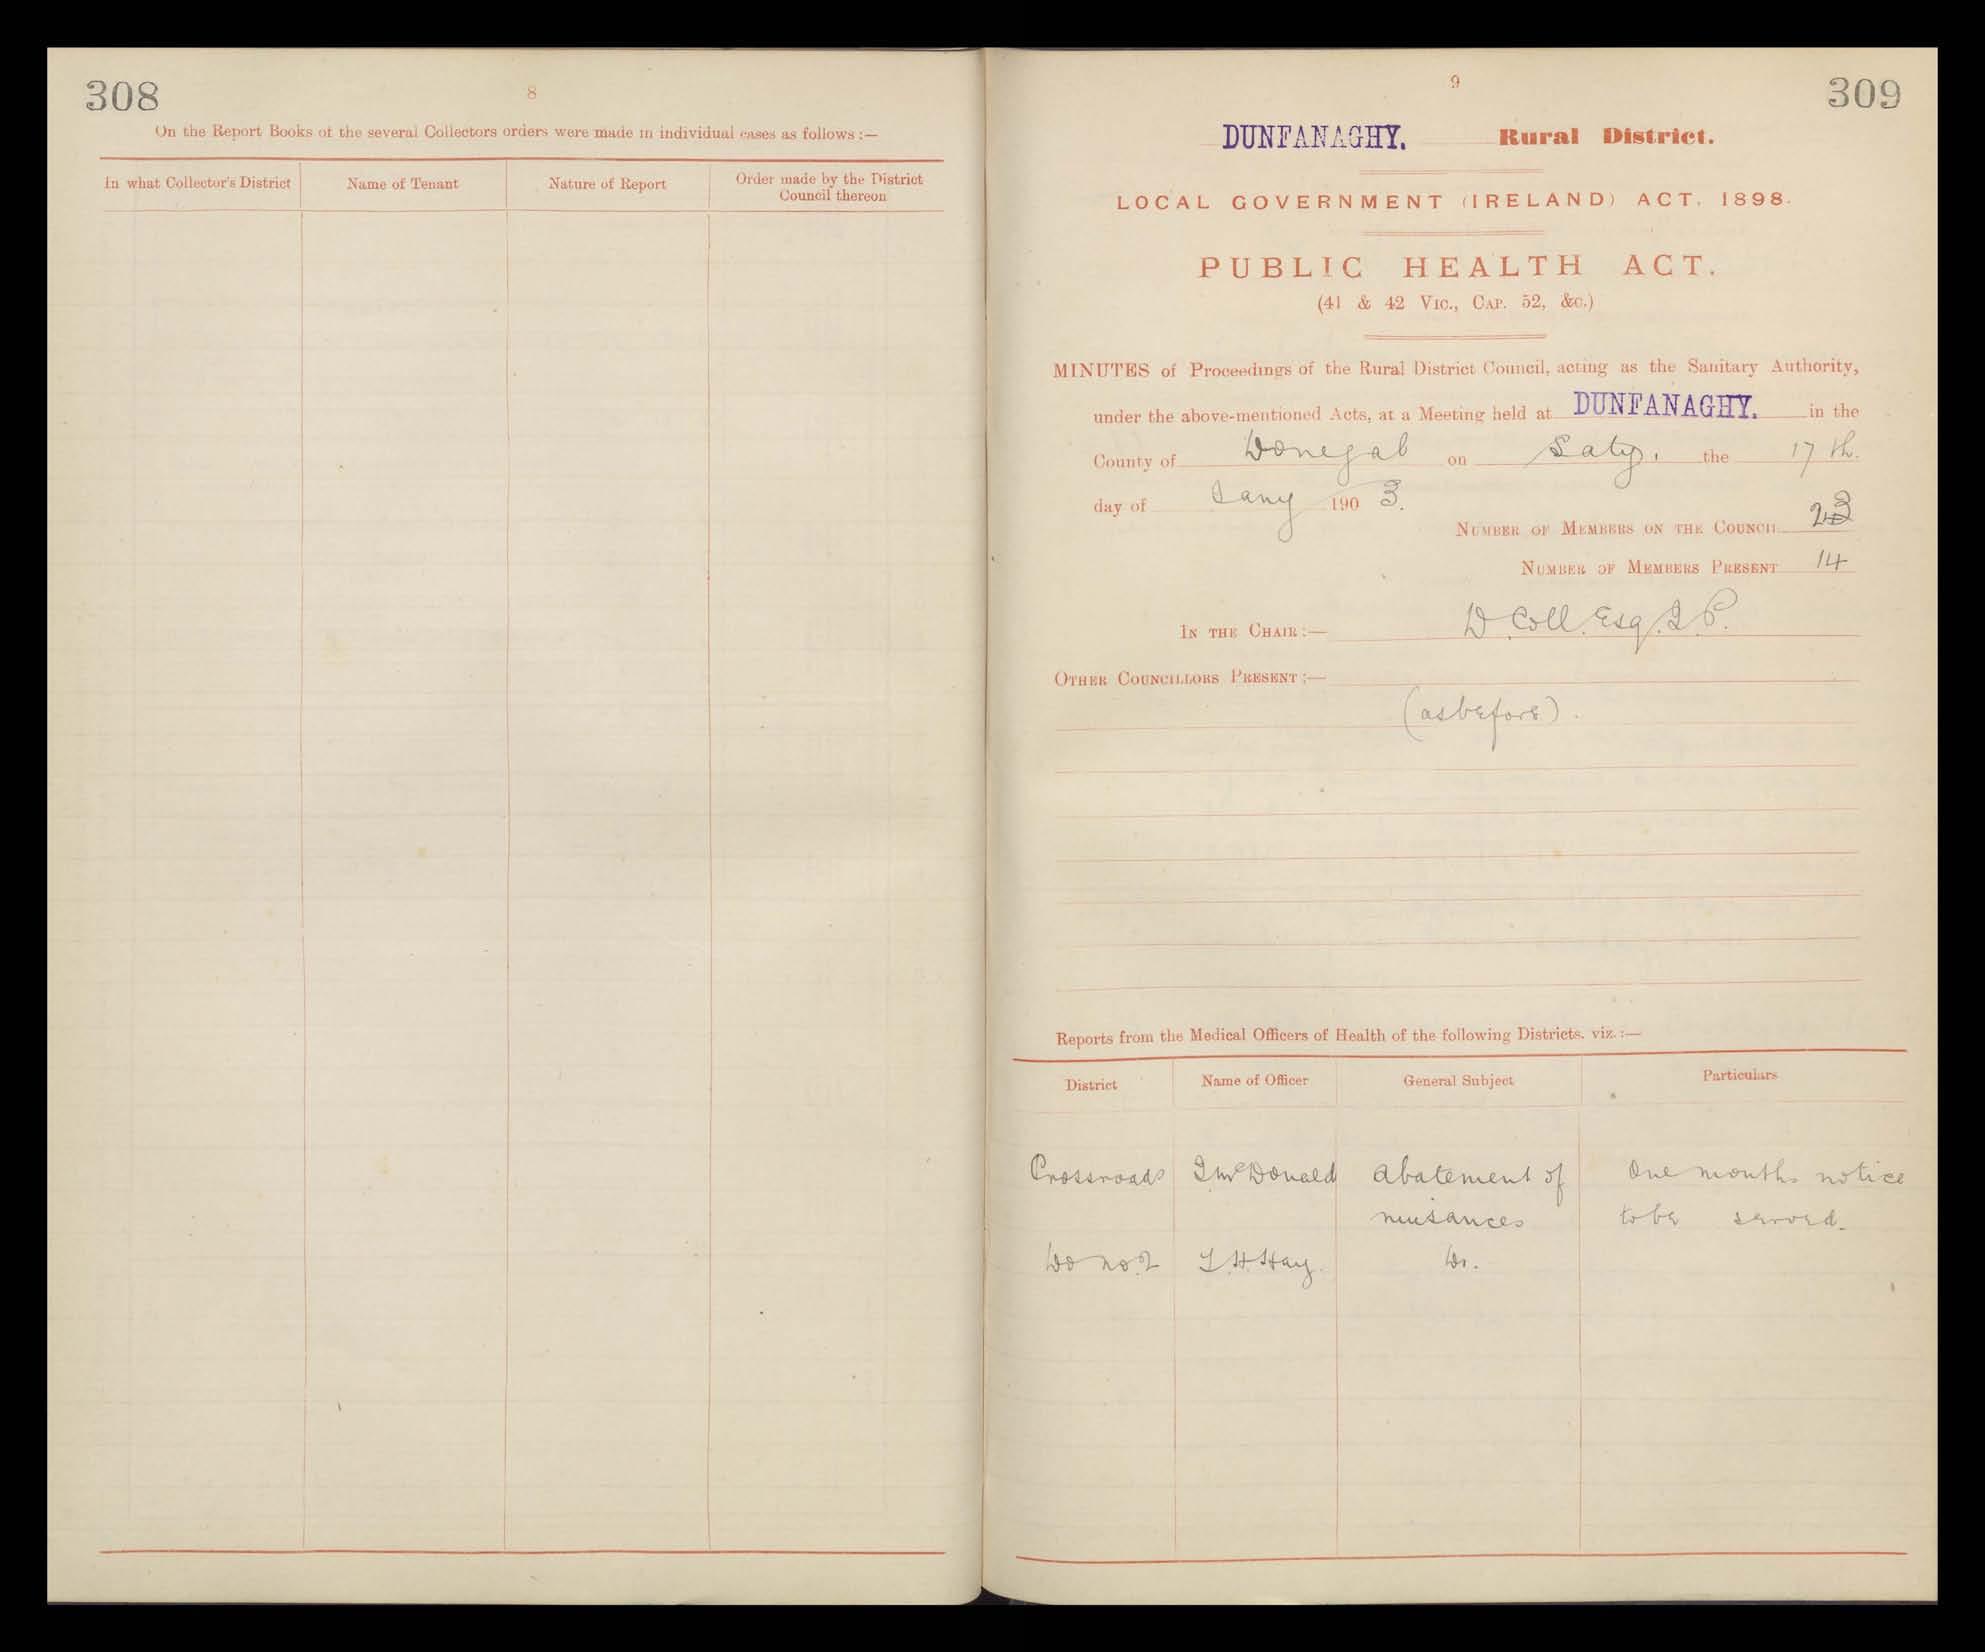 308
8
On the Report Books of the several Collectors orders were made in individual cases as follows :—
In what Collector's District
Name of Tenant
Nature of Report
Order made by the District
Council thereon
9
309
DUNFANAGHY. Rural District.
LOCAL GOVERNMENT (IRELAND) ACT, 1898.
PUBLIC HEALTH ACT.
(41 & 42 Vic., Cap. 52, &c.)
MINUTES of Proceedings of the Rural District Council, acting as the Sanitary Authority,
under the above-mentioned Acts, at a Meeting held at DUNFANAGHY. in the
County of Donegal on Saty. the 17th.
day of Jany 1903.
Number of Members on the Council
Number of Members Present 14
In the Chair :— D. Coll. Esq. J.P.
Other Councillors Present :—
(as before).
Reports from the Medical Officers of Health of the following Districts, viz. :—
District Name of Officer General Subject Particulars
Crossroads J McDonald Abatement of One months notice
nuisances to be served.
Do No. 2 Hay. Do.